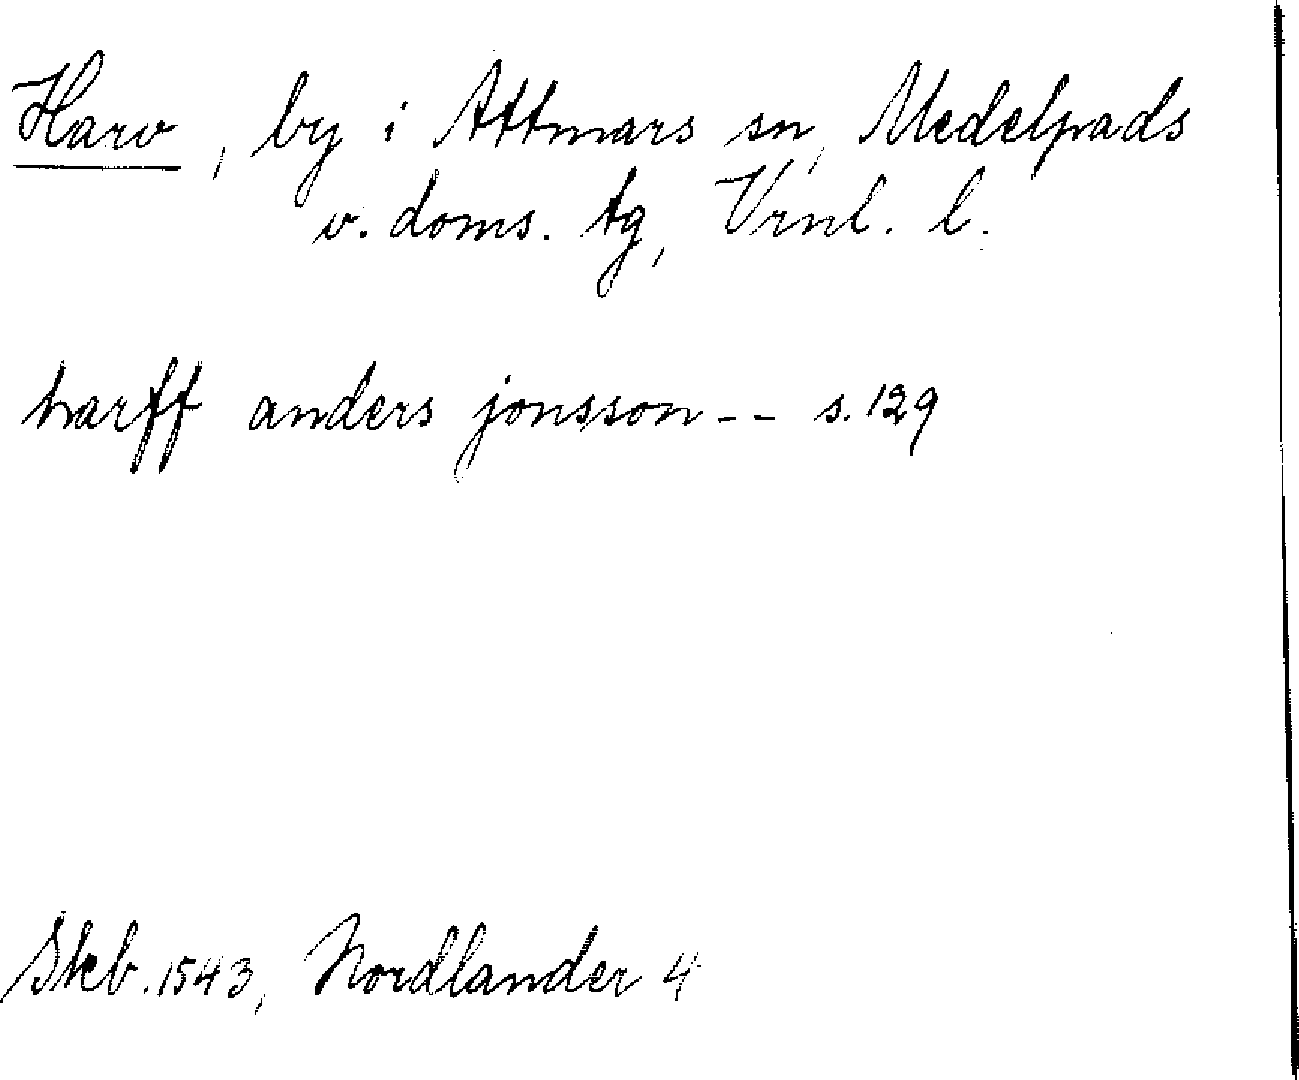 Harv, by i Attmars sn, Medelpads
v. doms. tg, Vrnl. l.
harff anders jonsson -- s. 129
Skb. 1543, Nordlander 4